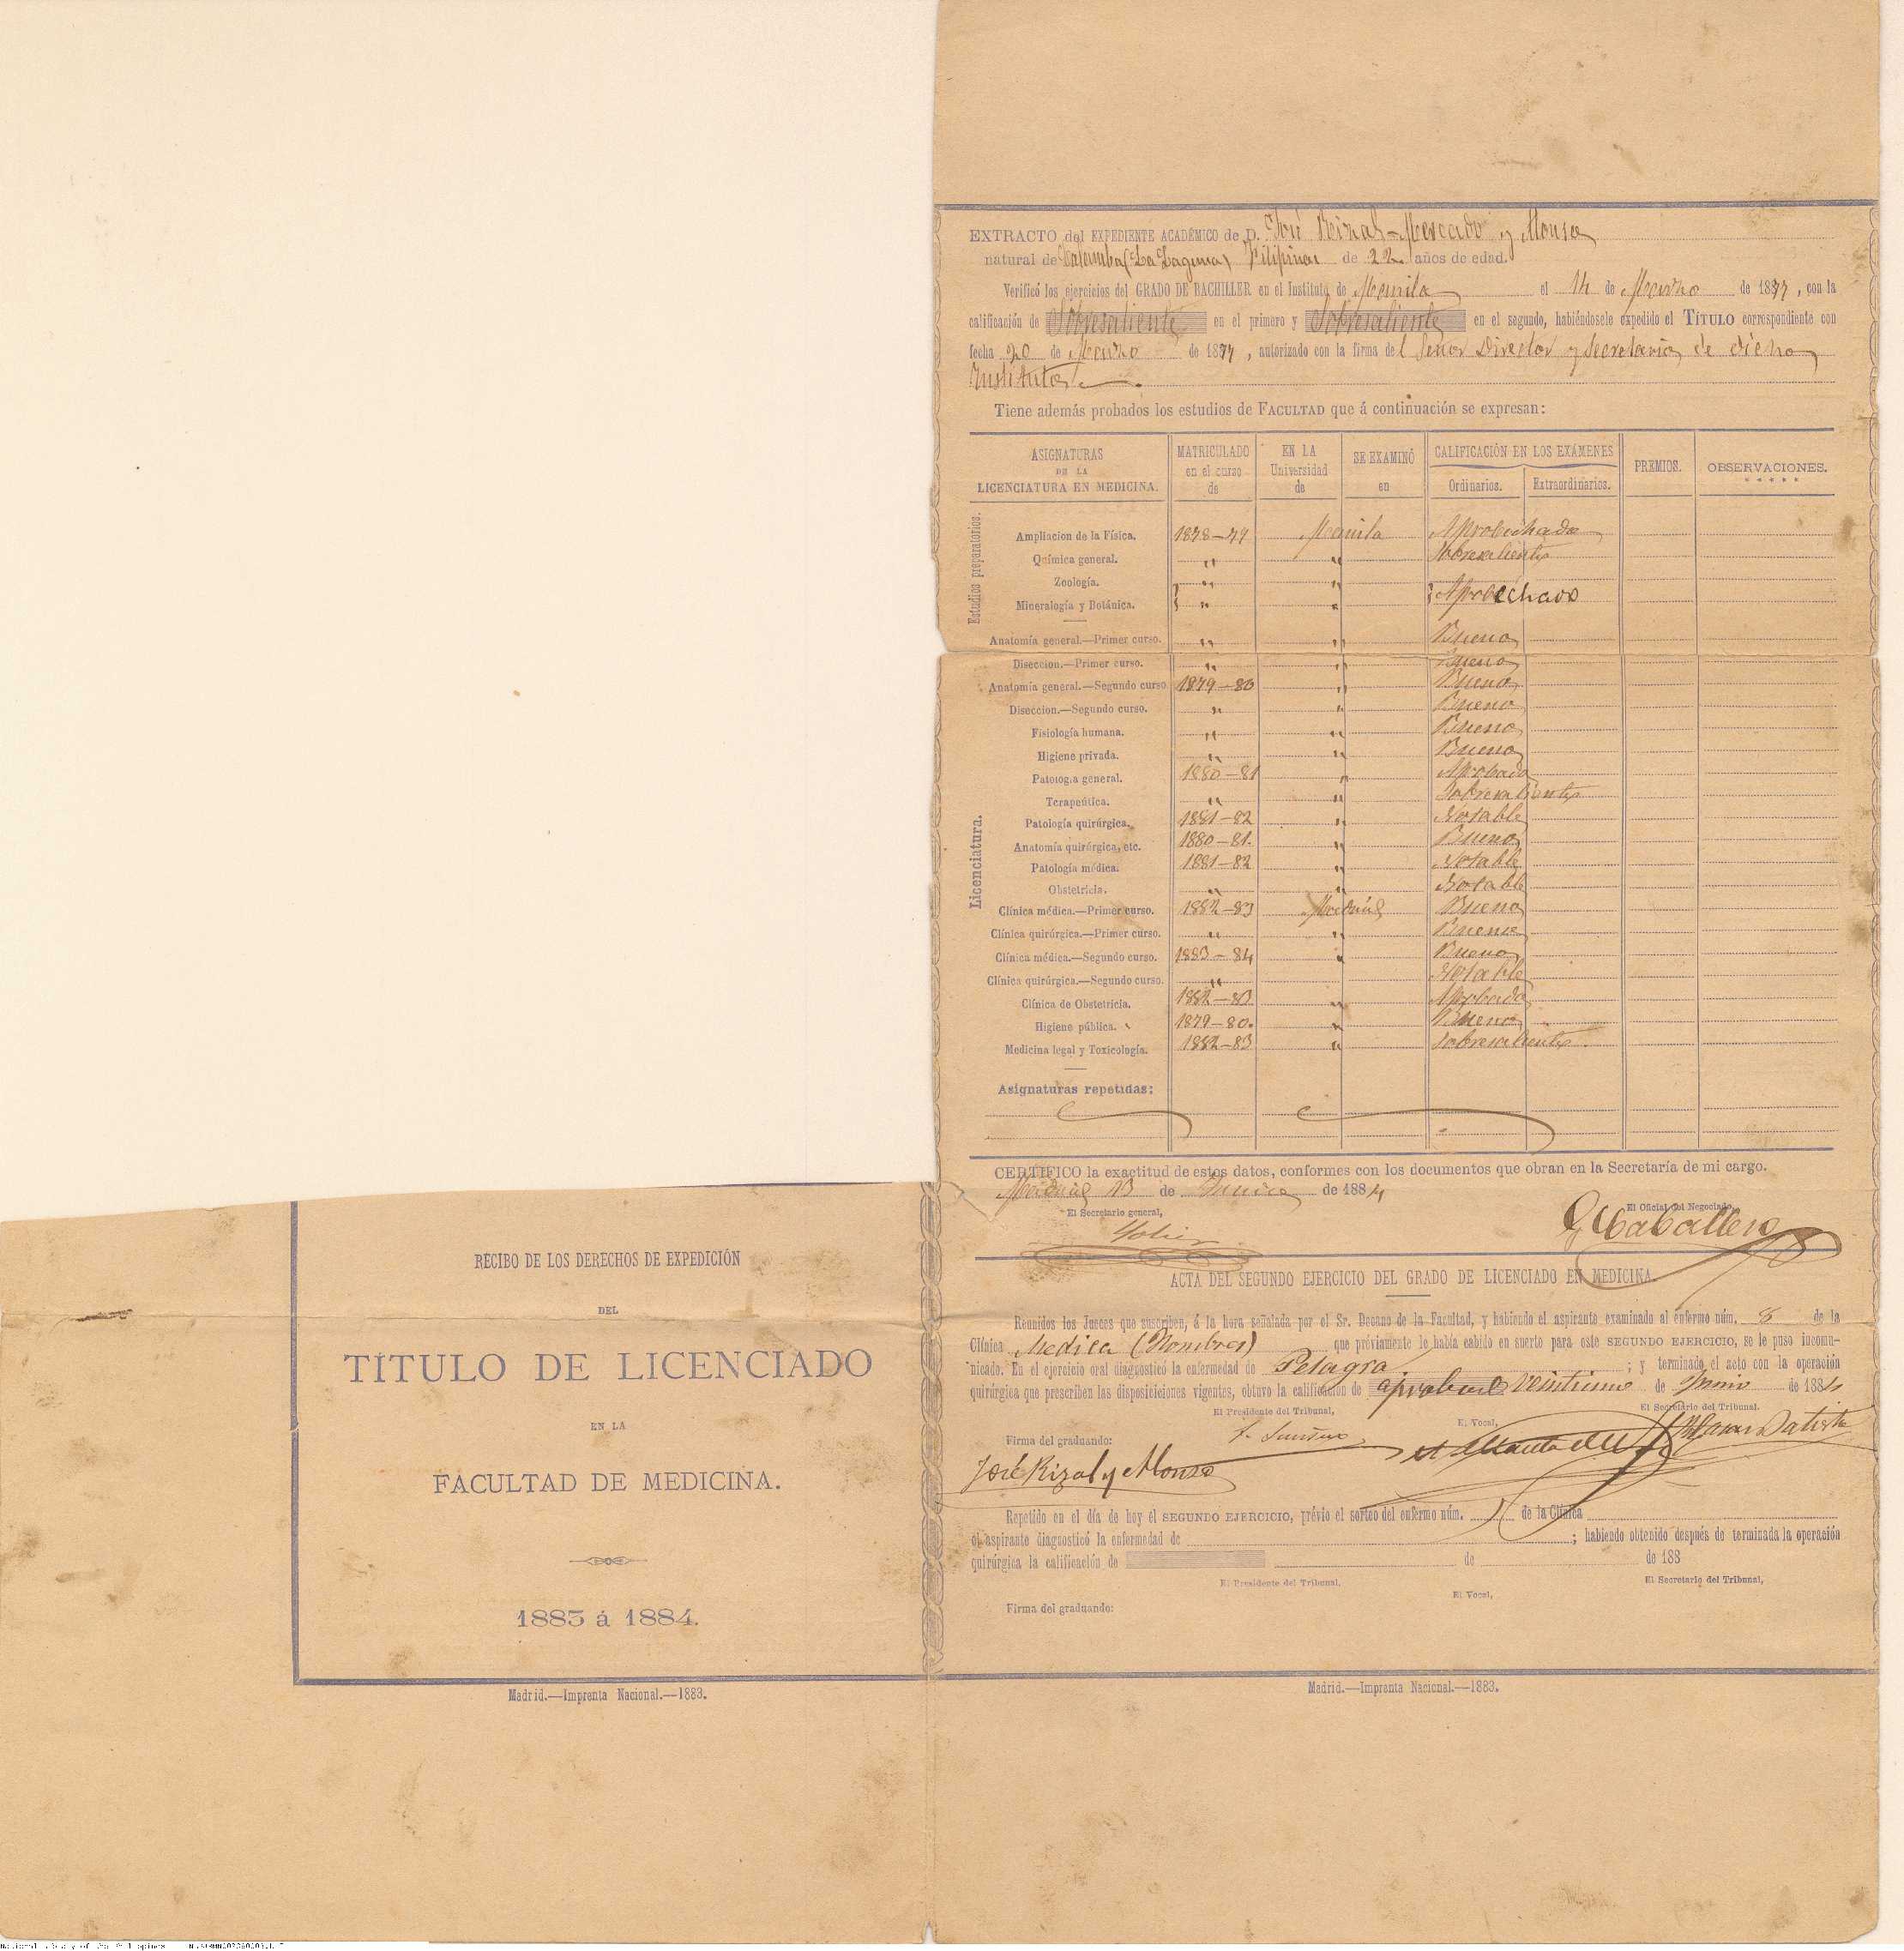 EXTRACTO del EXPEDIENTE ACADÉMICO de D. José Rizal-Mercado y Alonso
natural de Calamba (La Laguna) Filipinas de 22 años de edad.
Verificó los ejercicios del GRADO DE BACHILLER en el Instituto de Manila el 14 de Marzo de 1877, con la
calificación de Sobresaliente en el primero y Sobresaliente en el segundo, habiéndosele expedido el TÍTULO correspondiente con
fecha 20 de Marzo de 1877, autorizado con la firma del Señor Director y Secretario de dicho
Instituto.
Tiene además probados los estudios de FACULTAD que á continuación se expresan:
ASIGNATURAS DE LA LICENCIATURA EN MEDICINA. MATRICULADO en el curso de EN LA Universidad de SE EXAMINÓ en CALIFICACIÓN EN LOS EXÁMENES Ordinarios. Extraordinarios. PREMIOS. OBSERVACIONES.
Estudios preparatorios.
Ampliacion de la Física. 1878-79 Manila Aprobechado
Química general. " " Sobresaliente
Zoología. " "
Mineralogía y Botánica. " " Aprobechado
Licenciatura.
Anatomía general.—Primer curso. " " Bueno
Diseccion.—Primer curso. " " Bueno
Anatomía general.—Segundo curso. 1879-80 " Bueno
Diseccion.—Segundo curso. " " Bueno
Fisiología humana. " " Bueno
Higiene privada. " " Bueno
Patología general. 1880-81 " Aprobado
Terapéutica. " " Sobresaliente
Patología quirúrgica. 1881-82 " Notable
Anatomía quirúrgica, etc. 1880-81. " Bueno
Patología médica. 1881-82 " Notable
Obstetricia. " " Notable
Clínica médica.—Primer curso. 1882-83 Madrid Bueno
Clínica quirúrgica.—Primer curso. " " Bueno
Clínica médica.—Segundo curso. 1883-84 " Bueno
Clínica quirúrgica.—Segundo curso. " Notable
Clínica de Obstetricia. 1882-83 " Aprobado
Higiene pública. 1879-80. " Bueno
Medicina legal y Toxicología. 1882-83 " Sobresaliente.
Asignaturas repetidas:
CERTIFICO la exactitud de estos datos, conformes con los documentos que obran en la Secretaría de mi cargo.
Madrid 13 de Junio de 1884
El Secretario general, El Oficial del Negociado,
Caballero
ACTA DEL SEGUNDO EJERCICIO DEL GRADO DE LICENCIADO EN MEDICINA.
Reunidos los Jueces que suscriben, á la hora señalada por el Sr. Decano de la Facultad, y habiendo el aspirante examinado al enfermo núm. 8 de la
Clínica Medica (Hombres) que préviamente le había cabido en suerte para este SEGUNDO EJERCICIO, se le puso incomu-
nicado. En el ejercicio oral diagnosticó la enfermedad de Pelagra; y terminado el acto con la operación
quirúrgica que prescriben las disposiciciones vigentes, obtuvo la calificación de aprobado veintiuno de Junio de 1884
El Presidente del Tribunal, El Vocal, El Secretario del Tribunal.
Firma del graduando:
José Rizal y Alonso
Repetido en el día de hoy el SEGUNDO EJERCICIO, prévio el sorteo del enfermo núm. de la Clínica
el aspirante diagnosticó la enfermedad de ; habiendo obtenido después de terminada la operación
quirúrgica la calificación de de de 188
El Presidente del Tribunal, El Vocal, El Secretario del Tribunal,
Firma del graduando:
Madrid.—Imprenta Nacional.—1883.
RECIBO DE LOS DERECHOS DE EXPEDICIÓN
DEL
TÍTULO DE LICENCIADO
EN LA
FACULTAD DE MEDICINA.
1883 á 1884.
Madrid.—Imprenta Nacional.—1883.